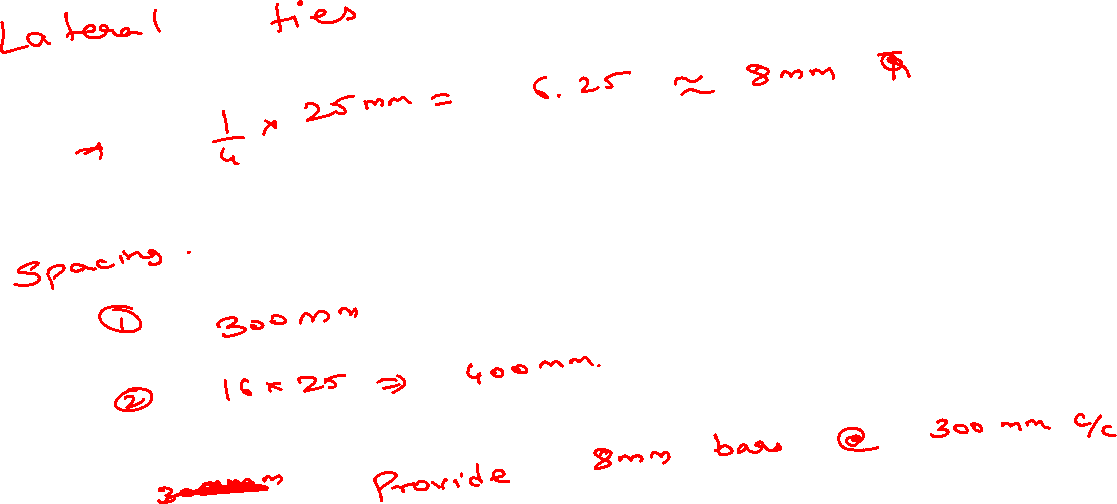 Lateral ties
→ 1/4 × 25mm = 6.25 ≈ 8mm
Spacing.
① 300mm
② 16 × 25 ⇒ 400mm.
Provide 8mm bars @ 300mm c/c